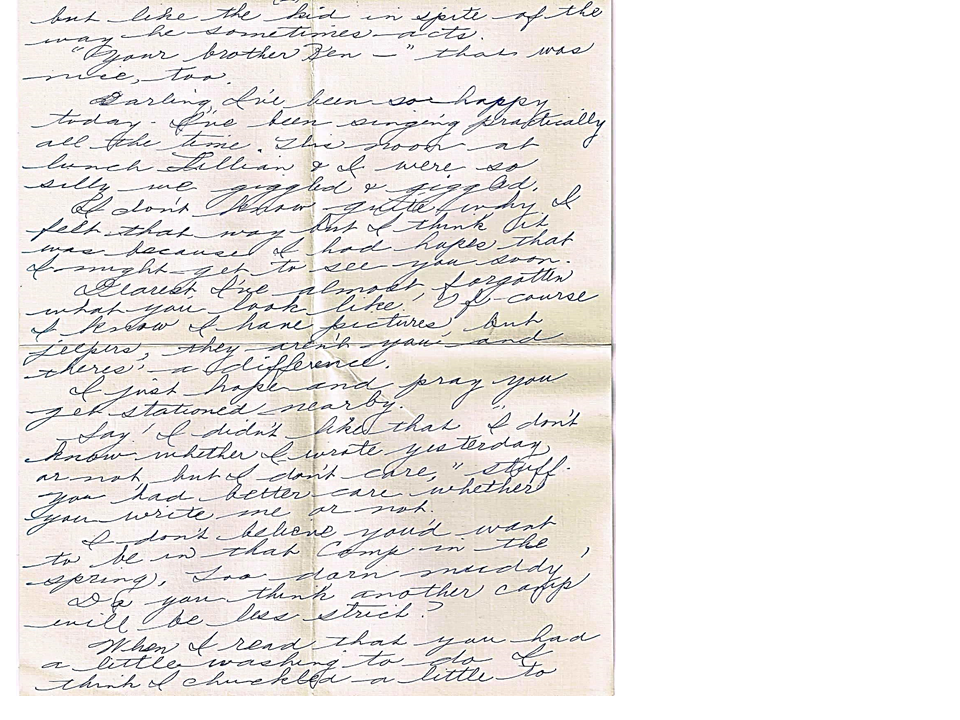 but like the kid in spite of the
way he sometimes acts.
"Your brother Ken —" that was
nice, too.
Darling, I've been so happy
today. I've been singing practically
all the time. This noon at
lunch Lillian & I were so
silly we giggled & giggled.
I don't know quite why I
felt that way but I think it
was because I had hopes that
I might get to see you soon.
Dearest I've almost forgotten
what you look like! Of course
I know I have pictures, but
jeepers, they aren't you and
there's a difference.
I just hope and pray you
get stationed nearby.
Say! I didn't like that "I don't
know whether I wrote yesterday
or not, but I don't care," stuff.
You had better care whether
you write me or not.
I don't believe you'd want
to be in that Camp in the
spring. Too darn muddy,
Do you think another camp
will be less strict?
When I read that you had
a little washing to do I
think I chuckled a little to